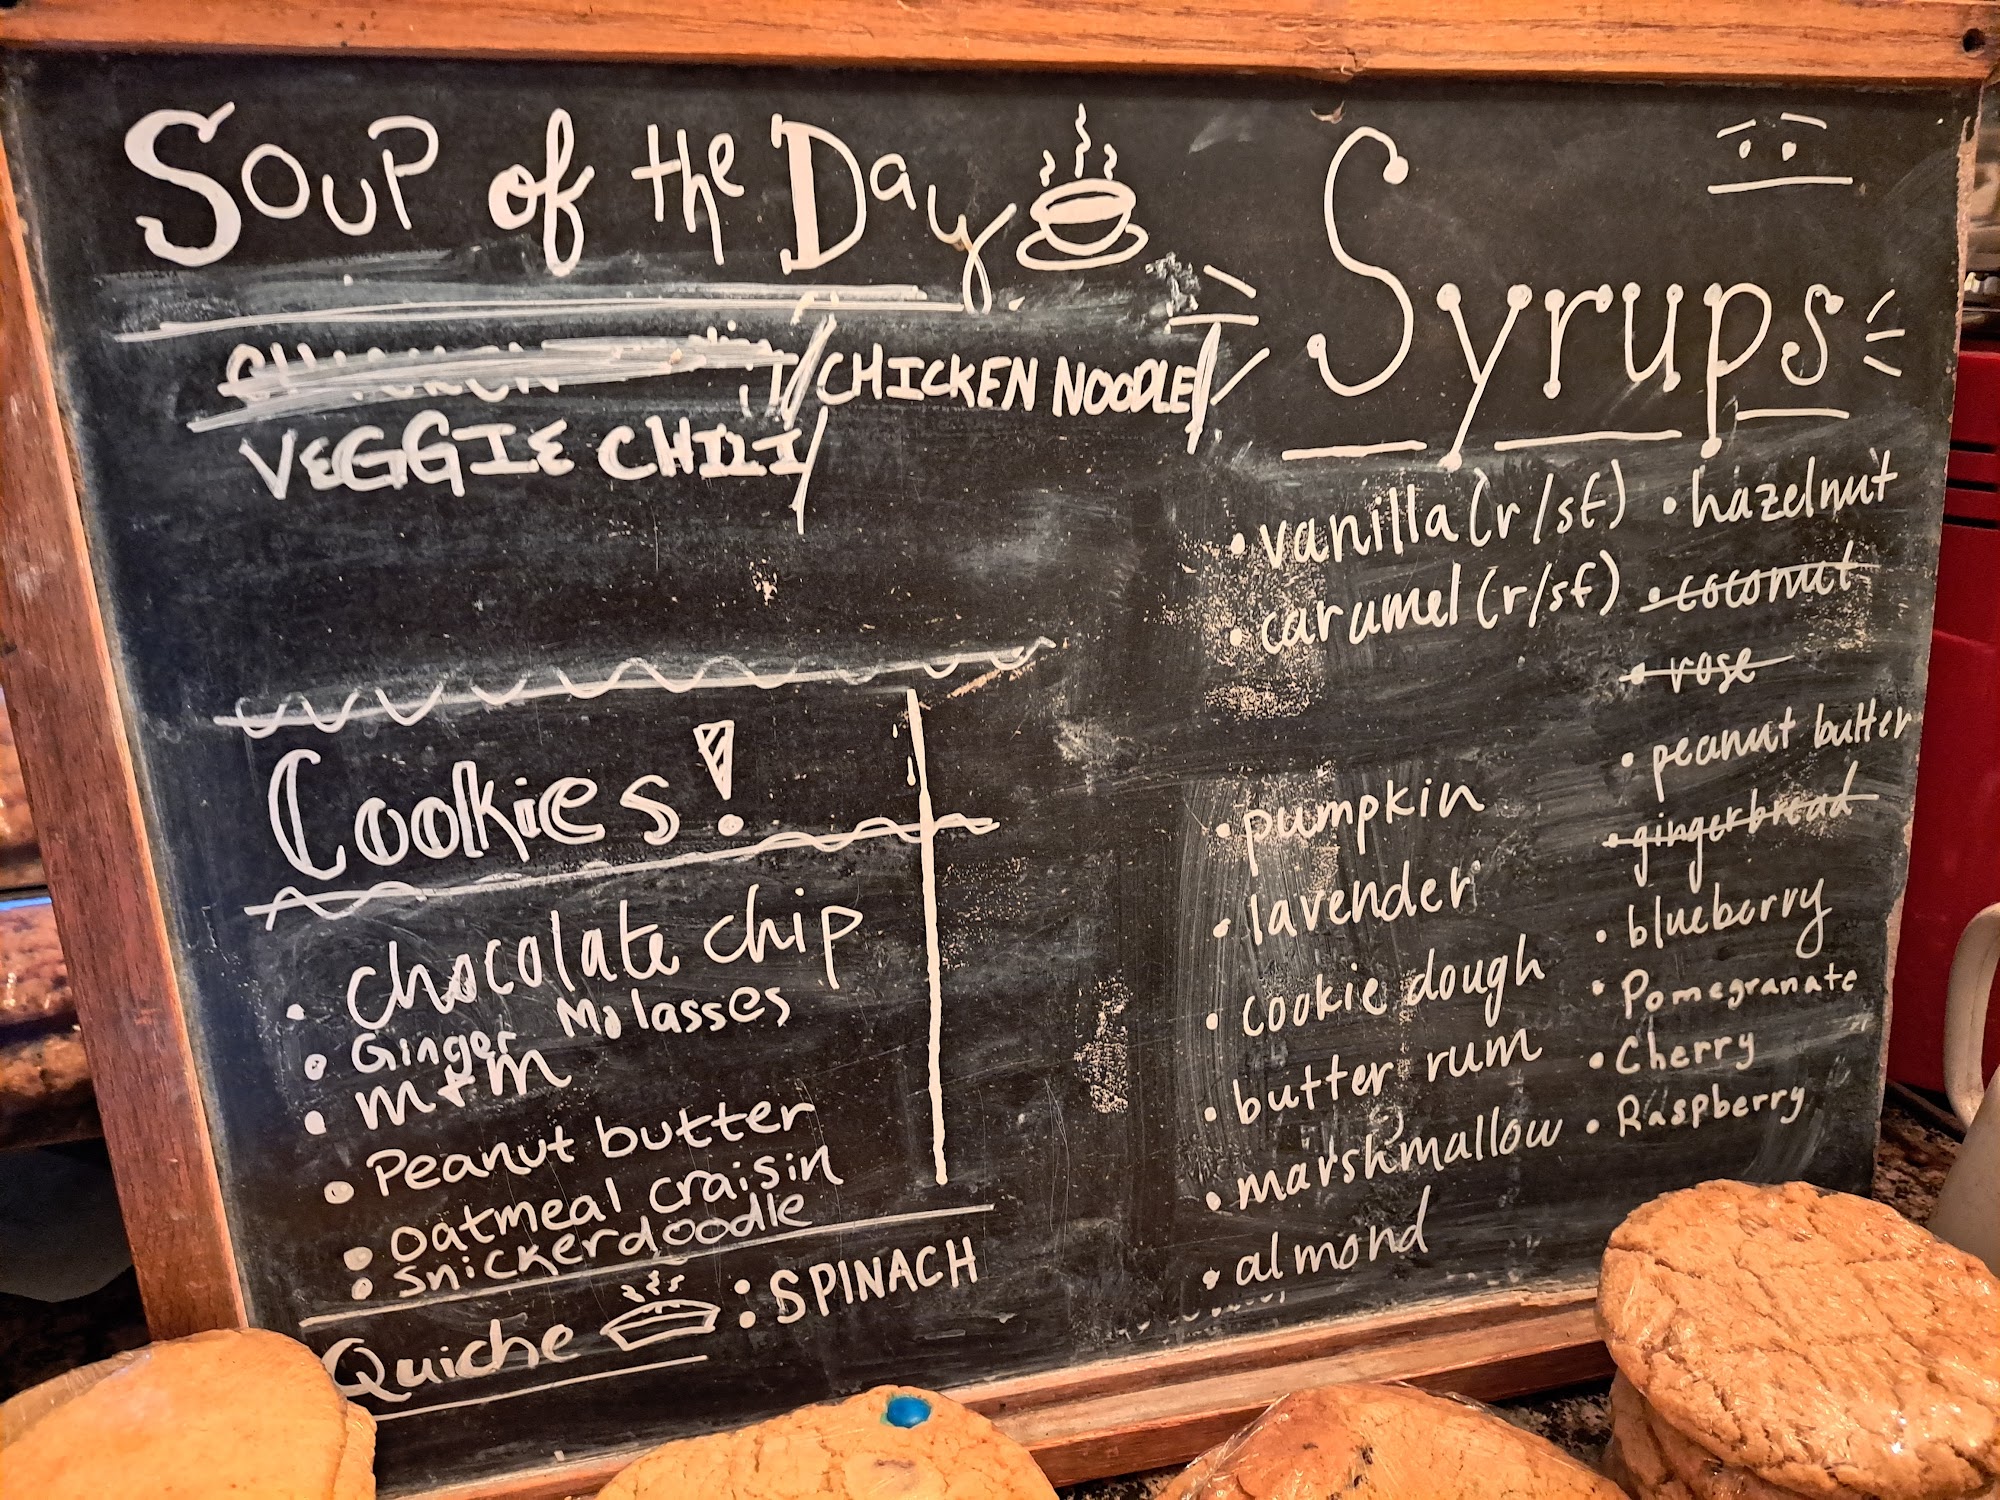 Soup of the Day
CHICKEN NOODLE
VEGGIE CHILI
Cookies!
• chocolate chip
• Ginger Molasses
• M+M
• Peanut butter
• Oatmeal craisin
• Snickerdoodle
Quiche : SPINACH
Syrups
• vanilla (r/sf)
• caramel (r/sf)
• pumpkin
• lavender
• cookie dough
• butter rum
• marshmallow
• almond
• hazelnut
• coconut
• rose
• peanut butter
• gingerbread
• blueberry
• Pomegranate
• Cherry
• Raspberry